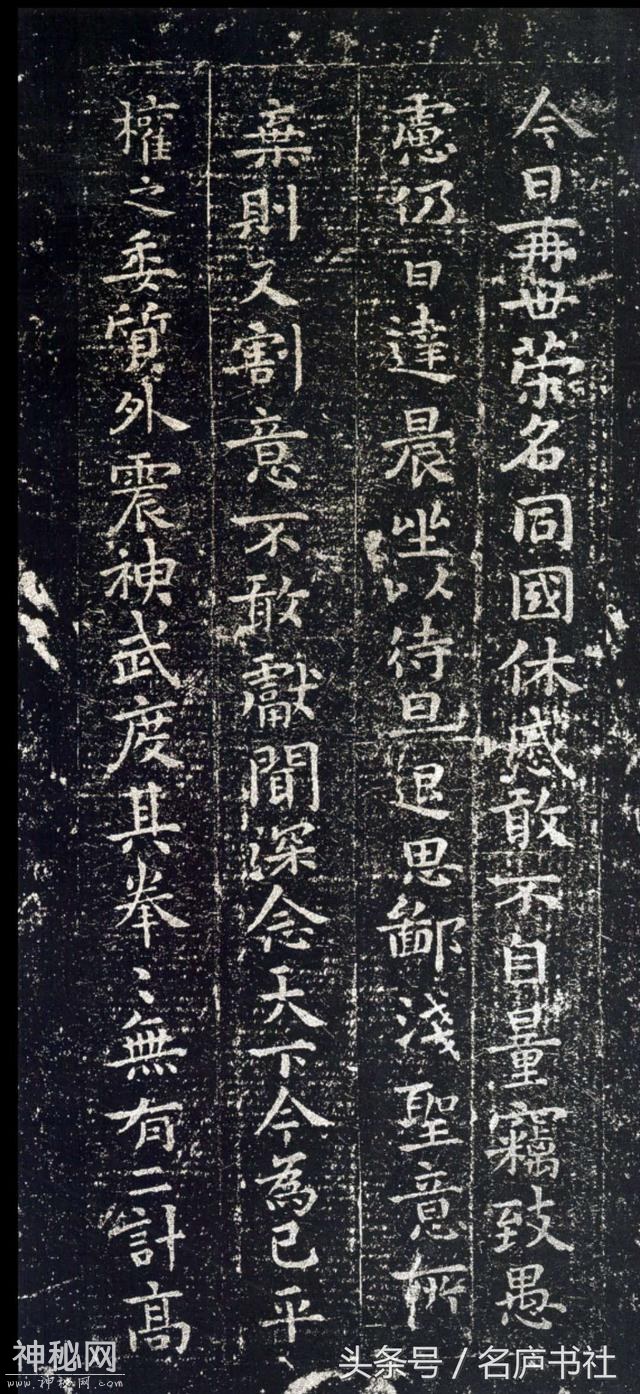 今日再世荣名同國休慼敢不自量竊致愚
慮仍日達晨坐以待旦退思鄙淺聖意所
棄則又割意不敢獻聞深念天下今為已平
權之委質外震神武度其拳〻無有二計高
神秘网
www.神秘网.com
头条号 / 名庐书社